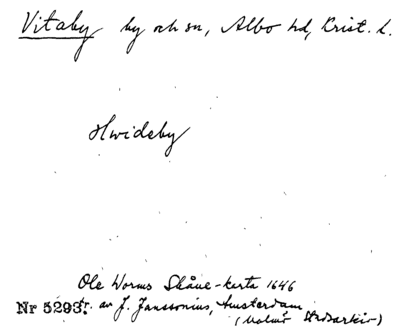 Vitaby by och sn, Albo hd, Krist. l.
Hwideby
Ole Worms Skåne-karta 1646
Nr 5293. av J. Janssonius, Amsterdam
(Malmö Stadsarkiv)